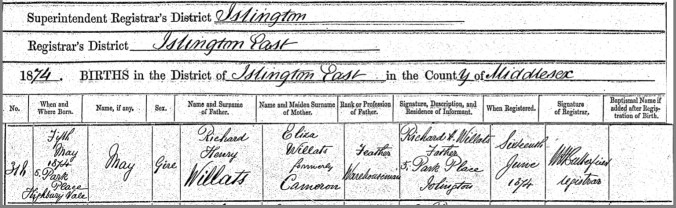 Superintendent Registrar's District Islington
Registrar's District Islington East
1874. BIRTHS in the District of Islington East in the County of Middlesex
No.
When and Where Born.
Name, if any.
Sex.
Name and Surname of Father.
Name and Maiden Surname of Mother.
Rank or Profession of Father.
Signature, Description, and Residence of Informant.
When Registered.
Signature of Registrar.
Baptismal Name if added after Registration of Birth.
Fifth
May
1874
5, Park
Place
Highbury Vale
May
Girl
Richard
Henry
Willats
Eliza
Willats
formerly
Cameron
Feather
Warehouseman
Richard H. Willats
Father
5, Park Place
Islington
Sixteenth
June
1874
registrar